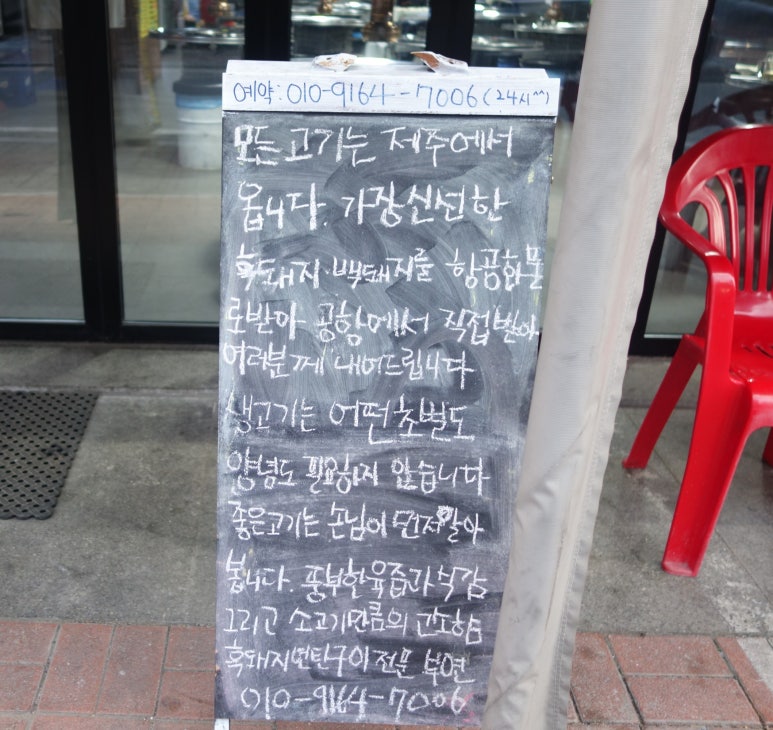 예약: 010-9164-7006 (24시^^)
모든고기는 제주에서
옵니다. 가장신선한
흑돼지·백돼지를 항공화물
로받아 공항에서 직접받아
여러분께 내어드립니다
생고기는 어떤초벌도
양념도 필요하지 않습니다
좋은고기는 손님이 먼저 알아
봅니다. 풍부한육즙과식감
그리고 소고기만큼의 고소함
흑돼지연탄구이전문 부연
010-9164-7006